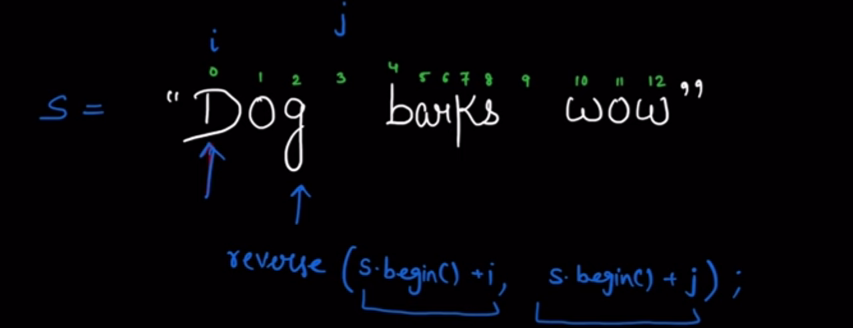 i j
0 1 2 3 4 5 6 7 8 9 10 11 12
S = "Dog barks wow"
reverse (s.begin() + i, s.begin() + j) ;